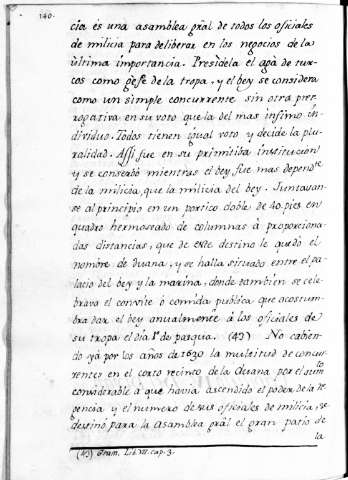 140.
cia es una asamblea grãl de todos los oficiales
de milicia para deliberar en los negocios de la
ùltima importancia. Presidela el agà de tur-
cos como gefe de la tropa, y el bey se considera
como un simple concurrente sin otra prer-
rogativa en su voto que la del mas infimo in-
dividuo. Todos tienen igual voto y decide la plu-
ralidad. Assi fue en su primitiba institucion
y se conserbò mientras el bey fue mas depend.te
de la milicia, que la milicia del bey. Juntavan-
se al principio en un portico doble de 40. pies en
quadro hermoseado de columnas à proporciona-
das distancias, que de este destino le quedò el
nombre de duana, y se halla situado entre el pa-
lacio del bey y la marina, donde tambien se cele-
brava el convite ò comida publica que acostum-
bra dar el bey anualmente à los oficiales de
su tropa el dia 1.º de pasqua. (43) No cabien-
do yà por los años de 1630 la multitud de concur-
rentes en el corto recinto de la duana por el aum.to
considerable à que havia ascendido el poder de la re-
gencia y el numero de sus oficiales de milicia, se
destinò para la asamblea grãl el gran patio de
la
(43) Gram. Lib. VII. cap. 3.